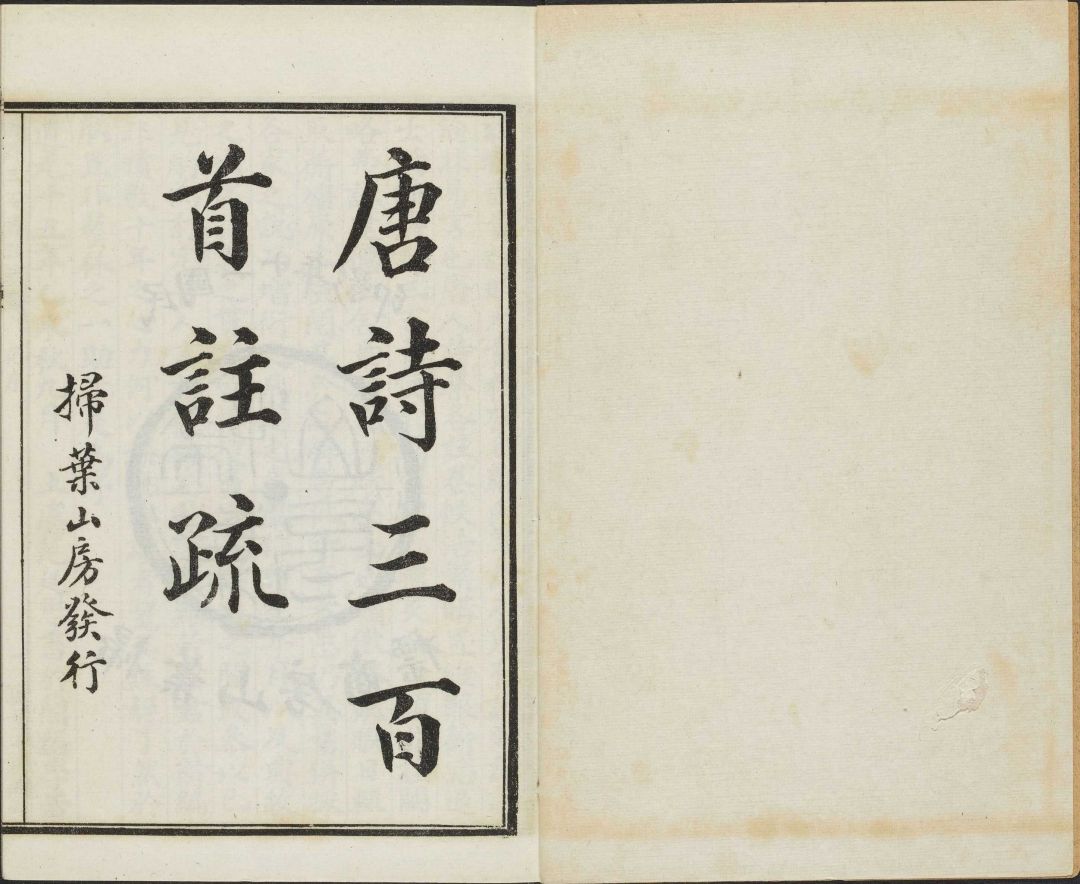 唐詩三百
首註疏
掃葉山房發行